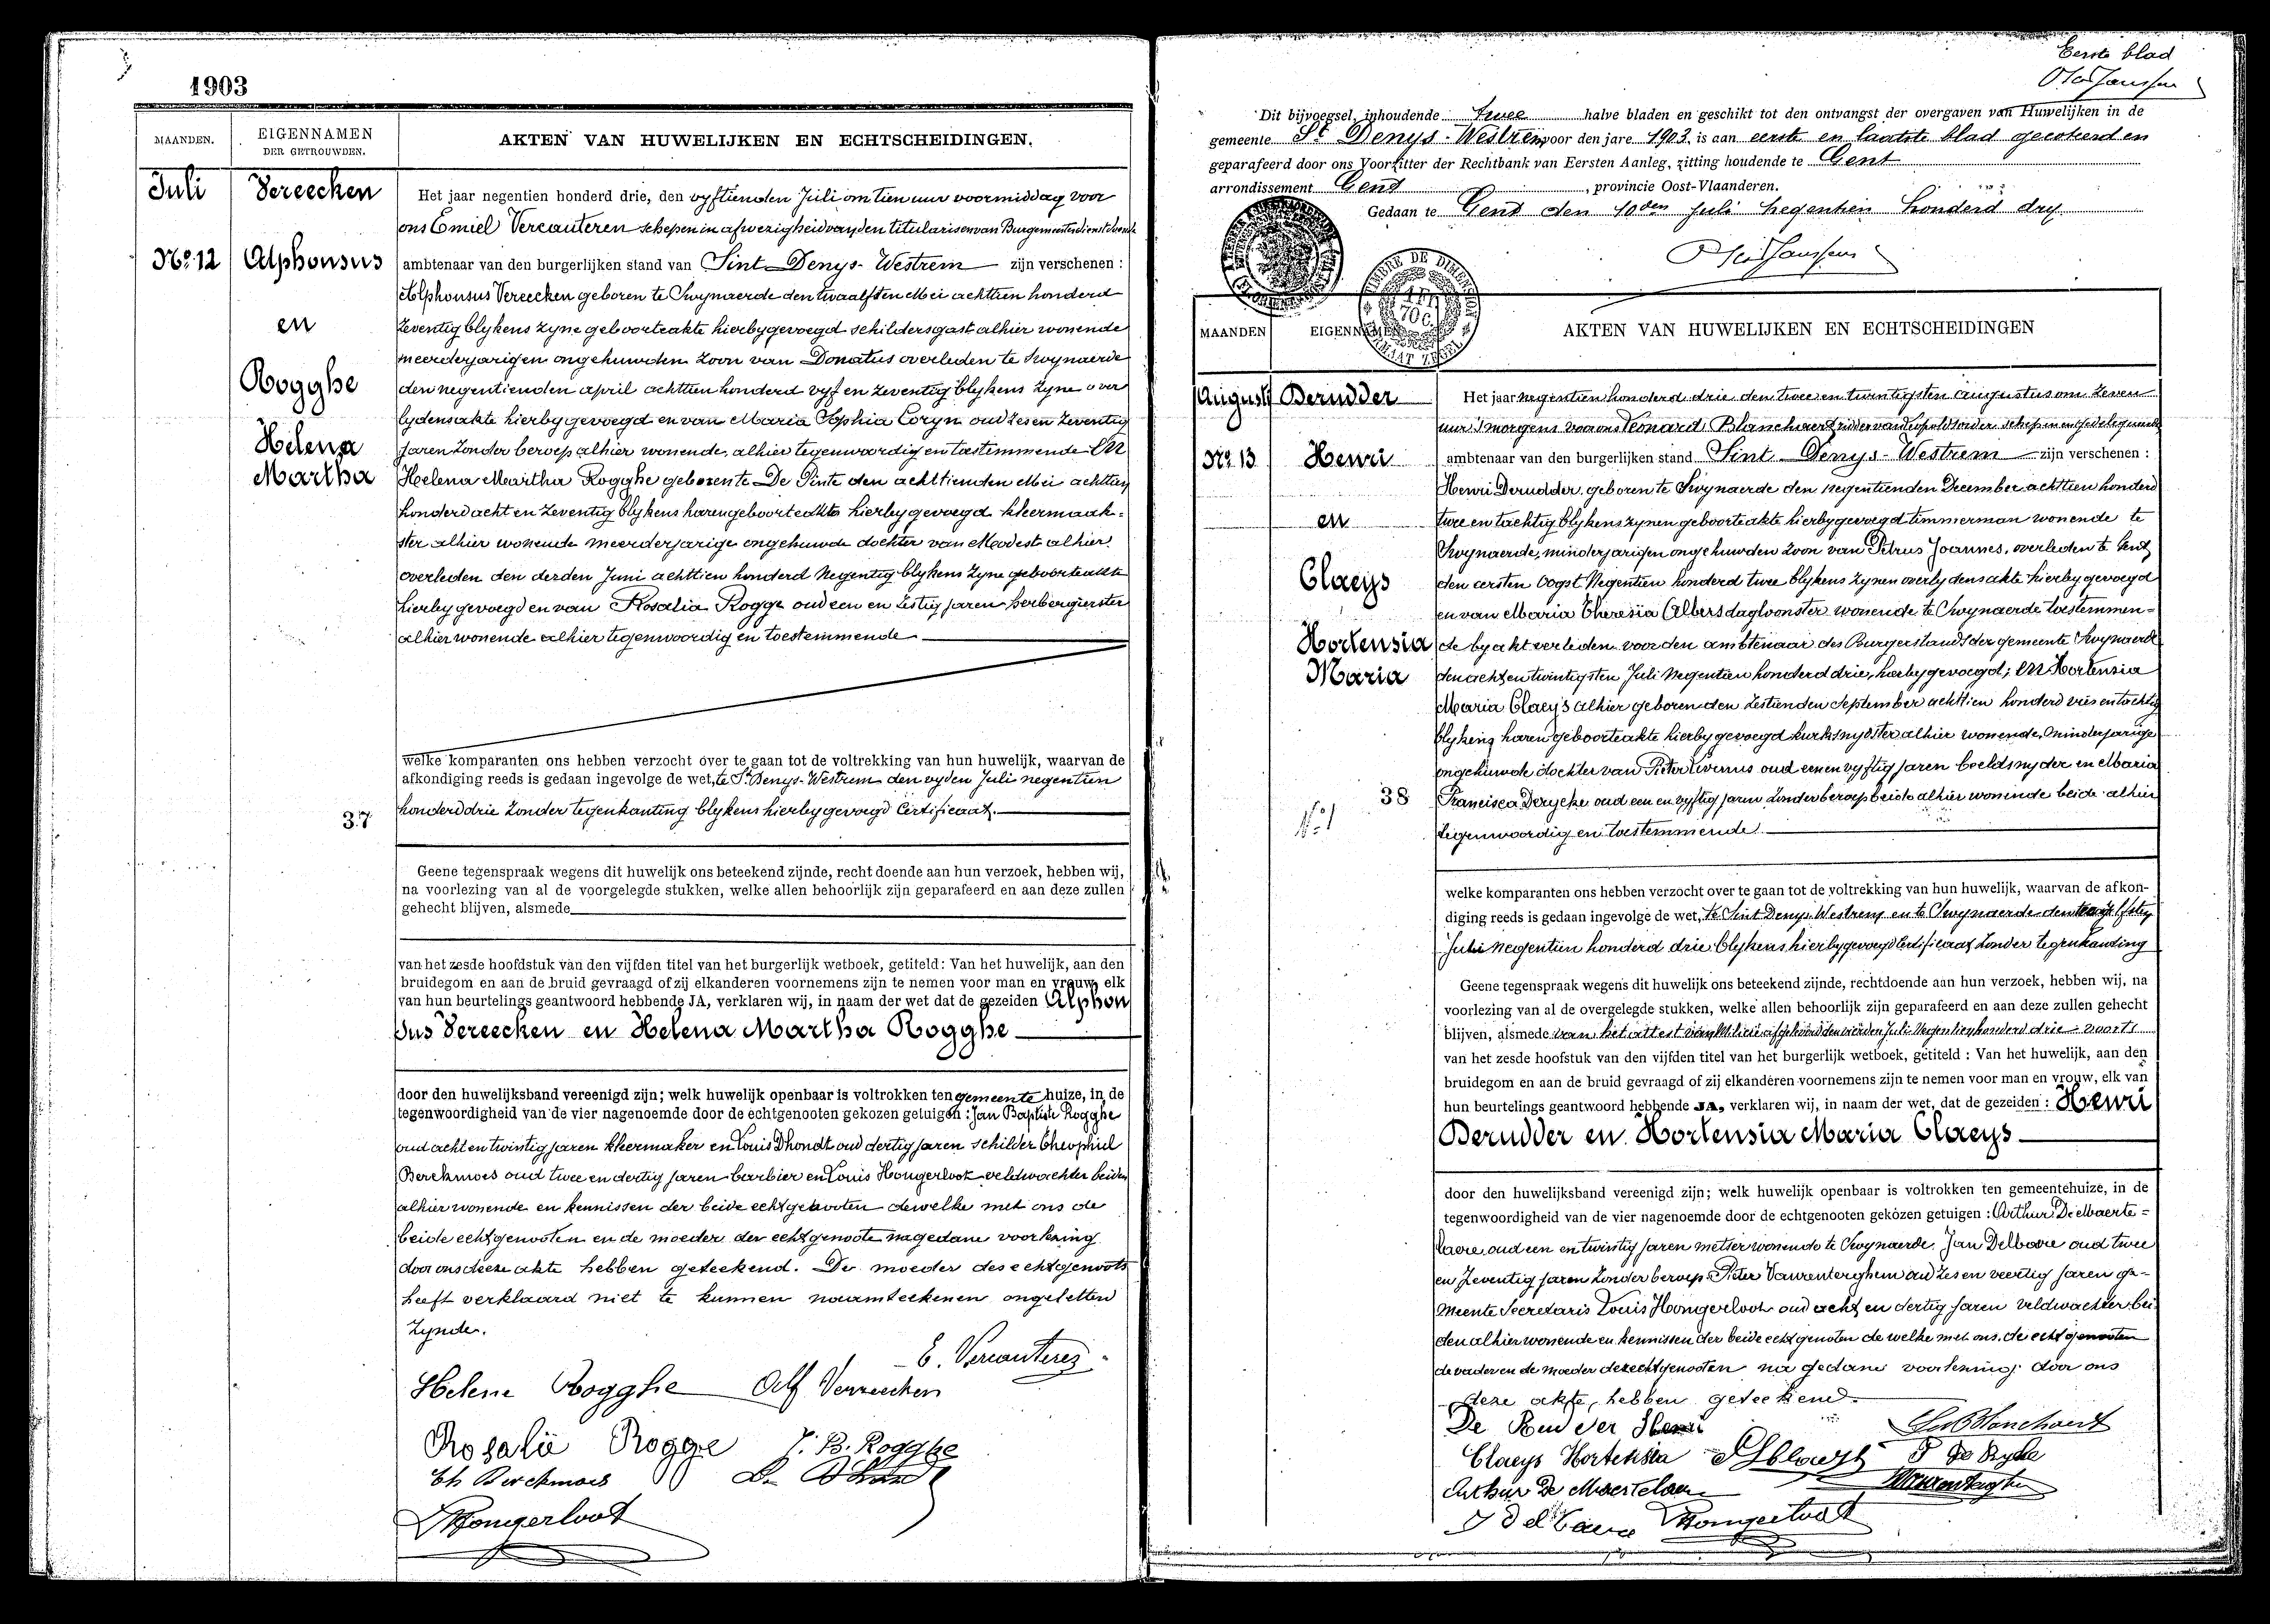 1903
MAANDEN.
EIGENNAMEN
DER GETROUWDEN.
AKTEN VAN HUWELIJKEN EN ECHTSCHEIDINGEN.
Juli
No. 12
Vereecken
Alphonsus
en
Rogghe
Helena
Martha
37
Het jaar negentien honderd drie, den vyftienden Juli om tien uur voormiddag voor
ons Emiel Vercauteren schepen in afwezigheid van den titularisen van Burgemeester dienstdoende
ambtenaar van den burgerlijken stand van Sint Denys-Westrem zijn verschenen :
Alphonsus Vereecken geboren te Swynaerde den twaalfsten Mei achttien honderd
zeventig blykens zyne geboorteakte hierbygevoegd schildersgast alhier wonende
meerderjarigen ongehuwden zoon van Donatus overleden te Swynaerde
den negentienden april achttien honderd vyf en zeventig blykens zyne over
lydensakte hierby gevoegd en van Maria Sophia Coryn oud zes en zeventig
jaren zonder beroep alhier wonende, alhier tegenwoordig en toestemmende En
Helena Martha Rogghe geboren te De Pinte den achttienden Mei achttien
honderd acht en zeventig blykens haren geboorteakte hierby gevoegd kleermaak-
ster alhier wonende meerderjarige ongehuwde dochter van Modest alhier
overleden den derden Juni achttien honderd negentig blykens zyne geboorteakte
hierby gevoegd en van Rosalia Rogge oud een en zestig jaren herbergierster
alhier wonende alhier tegenwoordig en toestemmende
welke komparanten ons hebben verzocht over te gaan tot de voltrekking van hun huwelijk, waarvan de
afkondiging reeds is gedaan ingevolge de wet, te St Denys-Westrem den vyden Juli negentien
honderd drie zonder tegenkanting blykens hierby gevoegd Certificaat.
Geene tegenspraak wegens dit huwelijk ons beteekend zijnde, recht doende aan hun verzoek, hebben wij,
na voorlezing van al de voorgelegde stukken, welke allen behoorlijk zijn geparafeerd en aan deze zullen
gehecht blijven, alsmede
van het zesde hoofdstuk van den vijfden titel van het burgerlijk wetboek, getiteld: Van het huwelijk, aan den
bruidegom en aan de bruid gevraagd of zij elkanderen voornemens zijn te nemen voor man en vrouw, elk
van hun beurtelings geantwoord hebbende JA, verklaren wij, in naam der wet dat de gezeiden Alphon
sus Vereecken en Helena Martha Rogghe
door den huwelijksband vereenigd zijn; welk huwelijk openbaar is voltrokken ten gemeente huize, in de
tegenwoordigheid van de vier nagenoemde door de echtgenooten gekozen getuigen : Jan Baptiste Rogghe
oud acht en twintig jaren kleermaker en Louis Dhondt oud dertig jaren schilder Theophiel
Berckmoes oud twee en dertig jaren barbier en Louis Hongerloot veldwachter beiden
alhier wonende en kennissen der beide echtgenooten dewelke met ons de
beide echtgenooten en de moeder der echtgenoote na gedane voorlezing
door ons deze akte hebben geteekend. De moeder des echtgenoots
heeft verklaard niet te kunnen naamteekenen ongeletterd
zynde.
E. Vercauteren
Helene Rogghe Alf Vereecken
Rosalie Rogge J. B. Rogghe
Th Berckmoes
Hongerloot
Eerste blad
Dit bijvoegsel, inhoudende twee halve bladen en geschikt tot den ontvangst der overgaven van Huwelijken in de
gemeente St Denys-Westrem voor den jare 1903, is aan eerste en laatste blad gecoteerd en
geparafeerd door ons Voorzitter der Rechtbank van Eersten Aanleg, zitting houdende te Gent
arrondissement Gend, provincie Oost-Vlaanderen.
Gedaan te Gend den 10den Juli negentien honderd dry.
TIMBRE DE DIMENSION
FORMAAT ZEGEL
MAANDEN
EIGENNAMEN
AKTEN VAN HUWELIJKEN EN ECHTSCHEIDINGEN
August
No. 13
Derudder
Henri
en
Claeys
Hortensia
Maria
38
No. 1
Het jaar negentien honderd drie den twee en twintigsten Augustus om zeven
uur 's morgens voor ons Leonard Blanchaert ridder van Leopoldsorder schepen en gedelegueerd
ambtenaar van den burgerlijken stand Sint Denys-Westrem zijn verschenen :
Henri Derudder geboren te Swynaerde den negentienden December achttien honderd
twee en tachtig blykens zynen geboorteakte hierbygevoegd timmerman wonende te
Swynaerde, minderjarigen ongehuwden zoon van Petrus Joannes, overleden te Gent
den eersten Oogst negentien honderd twee blykens zynen overlydensakte hierby gevoegd
en van Maria Theresia Albers dagloonster wonende te Swynaerde toestemmen-
de by akt verleden voor den ambtenaar des Burgerstands der gemeente Swynaerde
den acht en twintigsten Juli negentien honderd drie, hierby gevoegd; En Hortensia
Maria Claeys alhier geboren den zestienden September achttien honderd vier en tachtig
blykens haren geboorteakte hierby gevoegd kurksnydster alhier wonende, minderjarige
ongehuwde dochter van Pieter Livinus oud een en vyftig jaren beeldsnyder en Maria
Francisca Derycke oud een en vyftig jaren zonder beroep beide alhier wonende beide alhier
tegenwoordig en toestemmende
welke komparanten ons hebben verzocht over te gaan tot de voltrekking van hun huwelijk, waarvan de afkon-
diging reeds is gedaan ingevolge de wet, te Sint Denys Westrem en te Swynaerde den twaalfsten
Juli negentien honderd drie blykens hierbygevoegd Certificaat zonder tegenkanting
Geene tegenspraak wegens dit huwelijk ons beteekend zijnde, rechtdoende aan hun verzoek, hebben wij, na
voorlezing van al de overgelegde stukken, welke allen behoorlijk zijn geparafeerd en aan deze zullen gehecht
blijven, alsmede van het attest van Militie afgeleverd den vierden Juli negentien honderd drie voorts
van het zesde hoofstuk van den vijfden titel van het burgerlijk wetboek, getiteld : Van het huwelijk, aan den
bruidegom en aan de bruid gevraagd of zij elkanderen voornemens zijn te nemen voor man en vrouw, elk van
hun beurtelings geantwoord hebbende JA, verklaren wij, in naam der wet, dat de gezeiden : Henri
Derudder en Hortensia Maria Claeys
door den huwelijksband vereenigd zijn; welk huwelijk openbaar is voltrokken ten gemeentehuize, in de
tegenwoordigheid van de vier nagenoemde door de echtgenooten gekozen getuigen : Arthur De Maerte-
laere oud een en twintig jaren metser wonende te Swynaerde, Jan Delbaere oud twee
en zeventig jaren zonder beroep, Pieter Vaurenterghem oud zes en veertig jaren ge-
meente Secretaris Louis Hongerloot oud acht en dertig jaren veldwachter bei
den alhier wonende en kennissen der beide echtgenoten de welke met ons, de echtgenooten
de vader en de moeder der echtgenooten na gedane voorlezing door ons
deze akte, hebben geteekend.
De Rudder Henri
Claeys Hortensia
Arthur De Maertelaere
J Delbaere Hongerloot